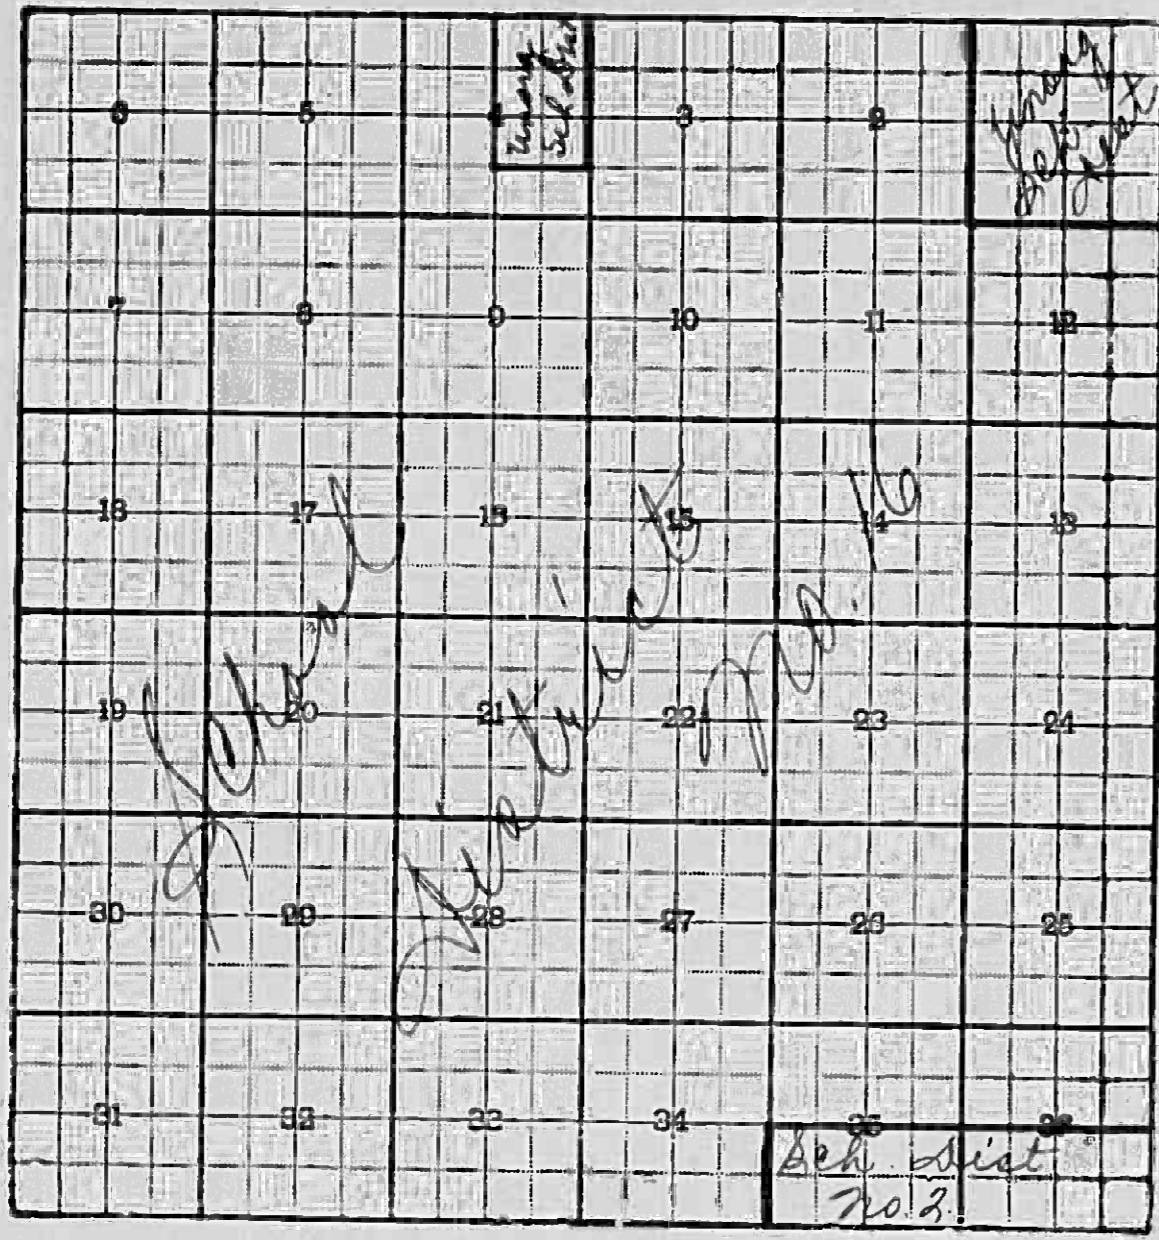 Unorg
Sch Dist
Unorg
Sch.
Dist
6 5 4 3 2
7 8 9 10 11 12
18 17 16 15 14 13
19 20 21 22 23 24
30 29 28 27 26 25
31 32 33 34 35 36
School
District
No. 16
Sch. Dist
no. 2.